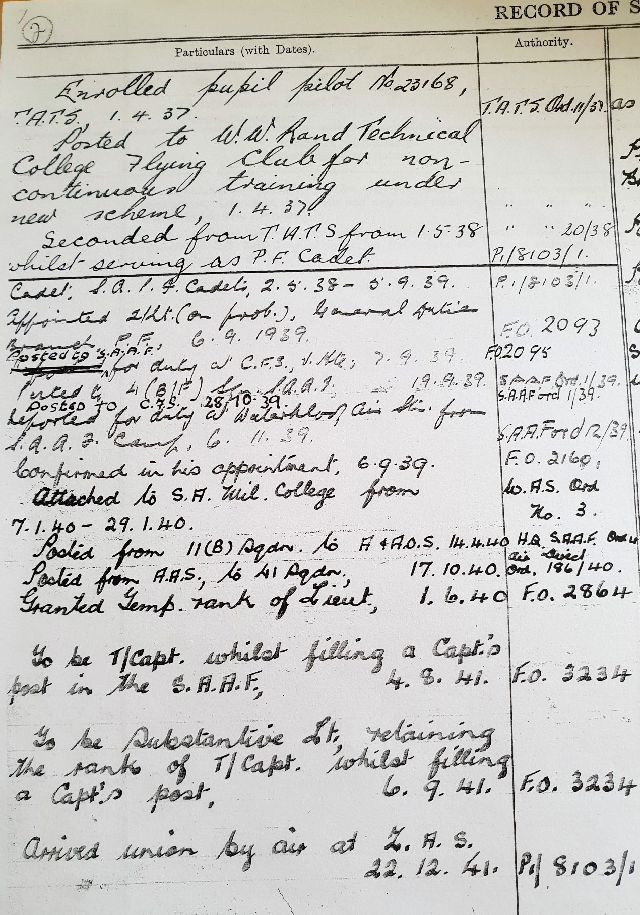 7
RECORD OF S
Particulars (with Dates). Authority.
Enrolled pupil pilot No. 23168,
T.A.T.S., 1.4.37. T.A.T.S. Ord. 11/37. as
Posted to W.W. Rand Technical
College Flying Club for non-
continuous training under
new scheme, 1.4.37. " " "
Seconded from T.A.T.S from 1.5.38 " " 20/38
whilst serving as P.F. Cadet. P.1/8103/1.
Cadet, S.A.P.F. Cadets, 2.5.38 - 5.9.39. P.1/8103/1.
Appointed 2/Lt. (on prob.), General Duties
Branch P.F., 6.9.1939. F.O. 2093
Posted to S.A.A.F.
for duty at C.F.S., 7.9.39. F.O 2095
Posted to 4 (B/F) Sqn. S.A.A.F. 19.9.39. S.A.A.F Ord. 1/39.
Posted to C.F.S. - 28/10.39. S.A.A.F ord 1/39.
Reported for duty at Waterkloof Air Stn. from
S.A.A.F. Camp, 6.11.39. S.A.A.F ord 12/39
Confirmed in his appointment, 6.9.39. F.O. 2160,
Attached to S.A. Mil. College from W.A.S. Ord
7.1.40 - 29.1.40. No. 3.
Posted from 11(B) Sqdn. to A & A.D.S. 14.4.40 H.Q. S.A.A.F. Ord
Posted from A.A.S., to 41 Sqdn., 17.10.40. Ord. 186/40.
Granted Temp. rank of Lieut, 1.6.40 F.O. 2864
To be T/Capt. whilst filling a Capt's
post in the S.A.A.F., 4.8.41. F.O. 3234
To be Substantive Lt, retaining
the rank of T/Capt. whilst filling
a Capt's post, 6.9.41. F.O. 3234
Arrived union by air at Z.A.S.
22.12.41. P1/8103/1